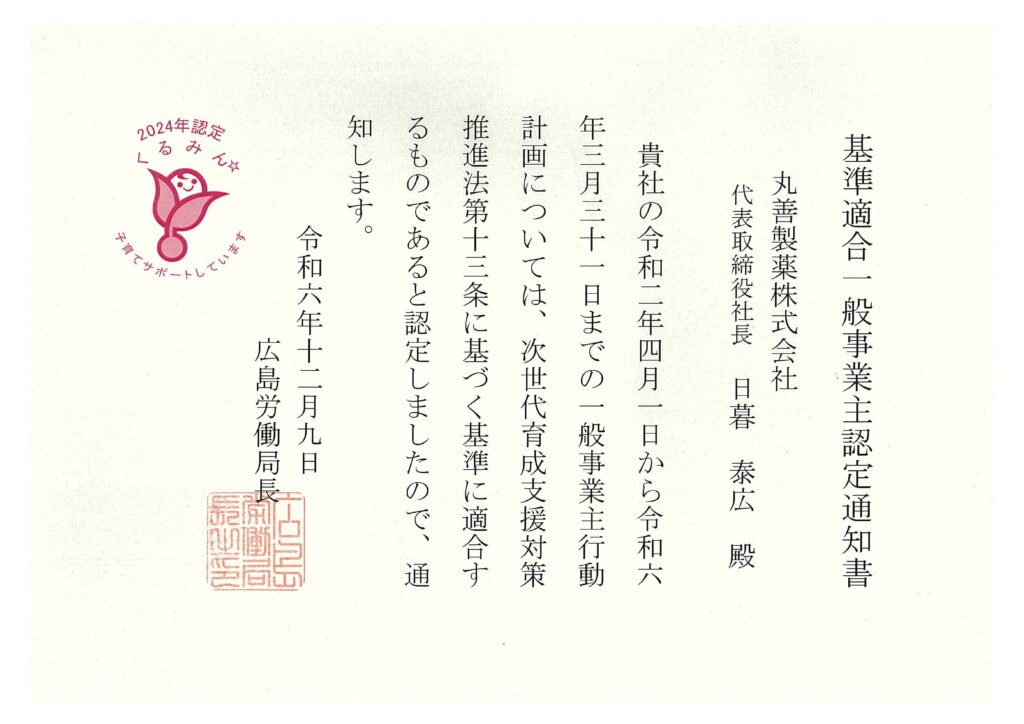 基準適合一般事業主認定通知書
丸善製薬株式会社
代表取締役社長　日暮　泰広　殿
貴社の令和二年四月一日から令和六
年三月三十一日までの一般事業主行動
計画については、次世代育成支援対策
推進法第十三条に基づく基準に適合す
るものであると認定しましたので、通
知します。
令和六年十二月九日
広島労働局長
広島
労働局
長之印
2024年認定
くるみん☆
子育てサポートしています